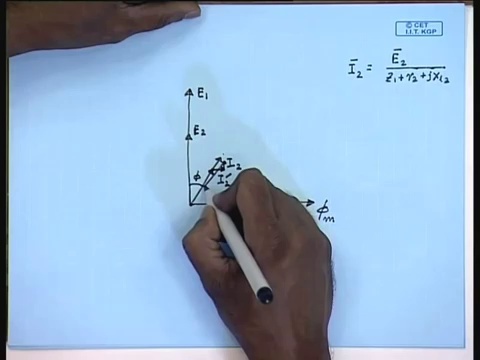 © CET
I.I.T. KGP
Ī₂ = Ē₂ / z₁+r₂+jx₁₂
E₁
E₂
I₂
ϕ
I₂′
ϕm